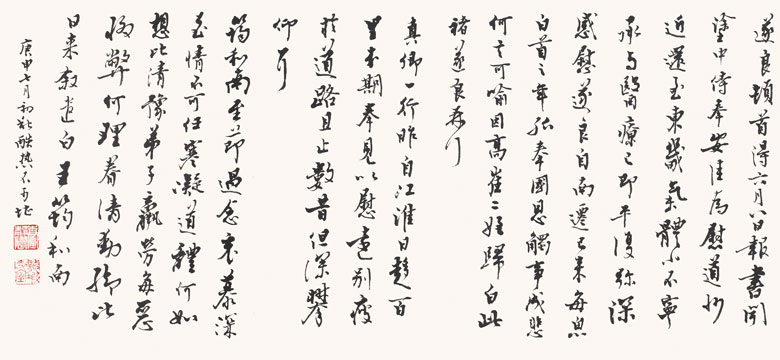 遂良頓首得六月八日報書聞
塗中侍奉安佳為慰道州
近還至東畿氣體小不寧
承与醫療之即平復弥深
感慰遂良自南遷已來每思
白首之年孤奉國恩觸事成悲
何言可喻因高崔二姪歸白此
褚遂良再行
真卿一行昨自江淮日趨百
里本期奉見以慰遠別疲
於道路且止數昔但深攀
仰
筠和南至節過念哀慕深
至情不可任寒凝道體何如
想比清豫弟子羸勞每惡
弊何理眷清勤
日來敘遣白王筠和南
庚申七月初秋酷熱不可堪